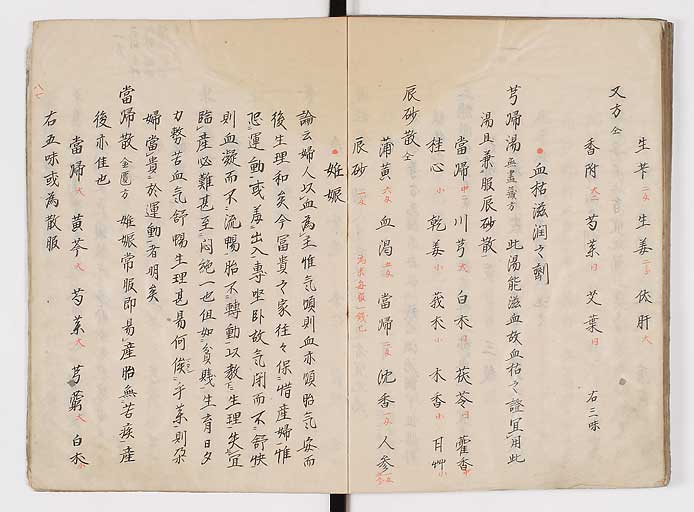 生芐 二戋 生姜 二戋 伏肝 大
又方 仝
香附 大二 芍薬 日 艾葉 日 右三味
血枯滋潤之劑
芎帰湯 無盡蔵方 此湯能滋血故血枯之證宜用此
湯且兼服辰砂散
當帰 中 川芎 大 白朮 日 茯苓 日 藿香 中
桂心 小 乾姜 小 莪朮 小 木香 小 甘艸 小
辰砂散 仝
蒲黄 六戋 血渇 五戋 當帰 二戋 沈香 一戋 人参
辰砂 二戋 為末毎服一銭匕
妊娠
論云婦人以血為主惟气順則血亦順胎气安而
後生理和矣今冨貴之家往々保惜産婦惟
恐運動或羞出入專坐卧故气闭而不舒快
則血凝而不流暢胎不轉動以数生理失宜
臨産必難甚至悶絶一也且如貧賤生育日夕
力勞苦血气舒暢生理甚易何俟于薬則孕
婦當貴於運動者明矣
當帰散 金匱方 妊娠常服即易産胎無苦疾産
後亦佳也
當帰 大 黄芩 大 芍薬 大 芎藭 大 白朮
右五味或為散服